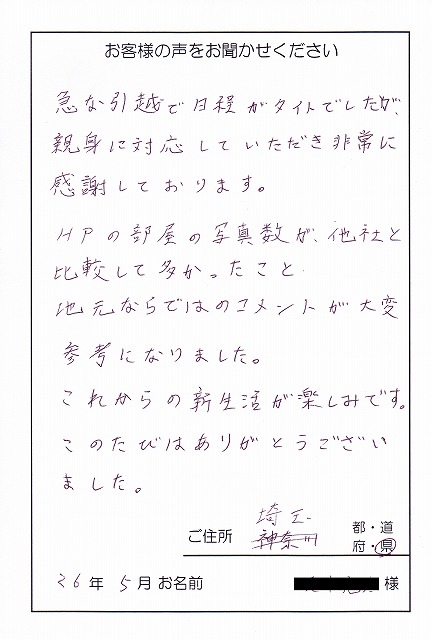 お客様の声をお聞かせください
急な引越で日程がタイトでしたが、
親身に対応していただき非常に
感謝しております。
HPの部屋の写真数が、他社と
比較して多かったこと
地元ならではのコメントが大変
参考になりました。
これからの新生活が楽しみです。
このたびはありがとうござい
ました。
埼玉
ご住所 神奈川 都・道
府・県
26年 5月 お名前 様